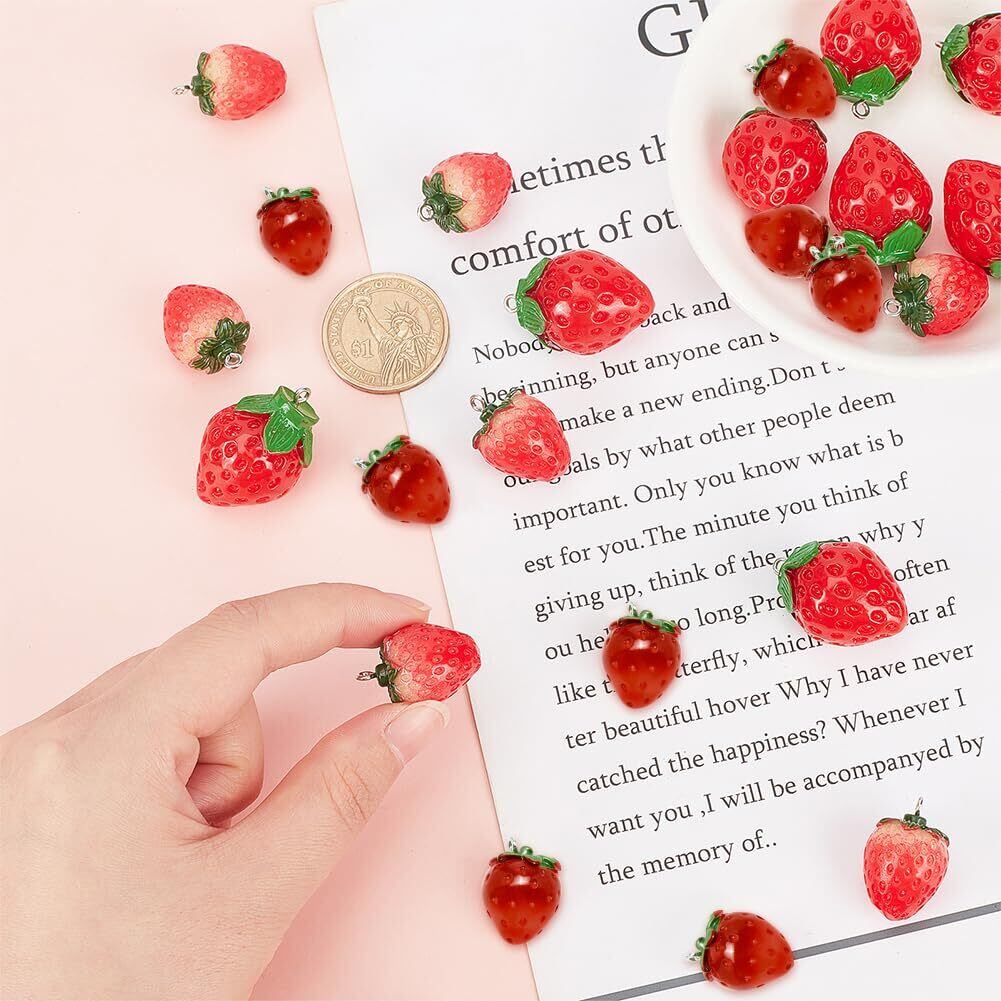 G
etimes th
comfort of ot
Nobody back and
beginning, but anyone can s
make a new ending.Don't
our goals by what other people deem
important. Only you know what is b
est for you.The minute you think of
giving up, think of the reason why y
ou he so long.Pro often
like butterfly, which ar af
ter beautiful hover Why I have never
catched the happiness? Whenever I
want you ,I will be accompanied by
the memory of..
UNITED STATES OF AMERICA
$1